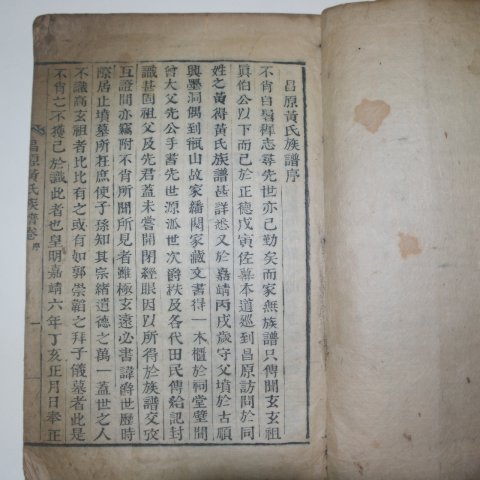 昌原黃氏族譜序
不肖自髫稚志尋先世亦已勤矣而家無族譜只傳聞玄玄祖
眞伯公以下而已於正德戊寅佐幕本道巡到昌原訪問於同
姓之黃得黃氏族譜甚詳悉又於嘉靖丙戌歲守父墳於古順
興墨洞偶到瓶山故家繙閱家藏文書得一木櫃於祠堂壁間
曾大父先公手書先世源派世次爵秩及各代田民傳給記封
識甚固祖父及先君蓋未嘗開閉經眼因以所得於族譜交攷
互證間亦竊附不肖所聞所見者雖極玄遠必書諱爵世歷時
際居止墳墓所在庶使子孫知其宗緒遺德之萬一蓋世之人
不識高玄祖者比比有之或有如郭崇韜之拜子儀墓者此是
不肖之不獲已於識此者也皇明嘉靖六年丁亥正月日奉正
昌原黃氏族譜卷 序 一